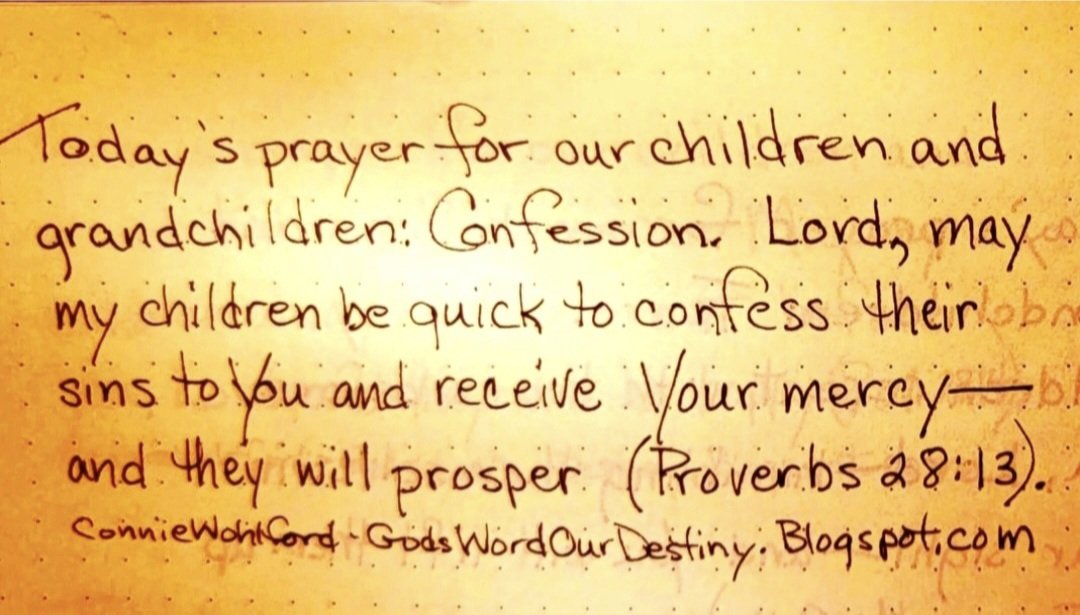 Today's prayer for our children and
grandchildren: Confession. Lord, may
my children be quick to confess their
sins to You and receive Your mercy—
and they will prosper (Proverbs 28:13).
ConnieWohlford - GodsWordOurDestiny.Blogspot.com